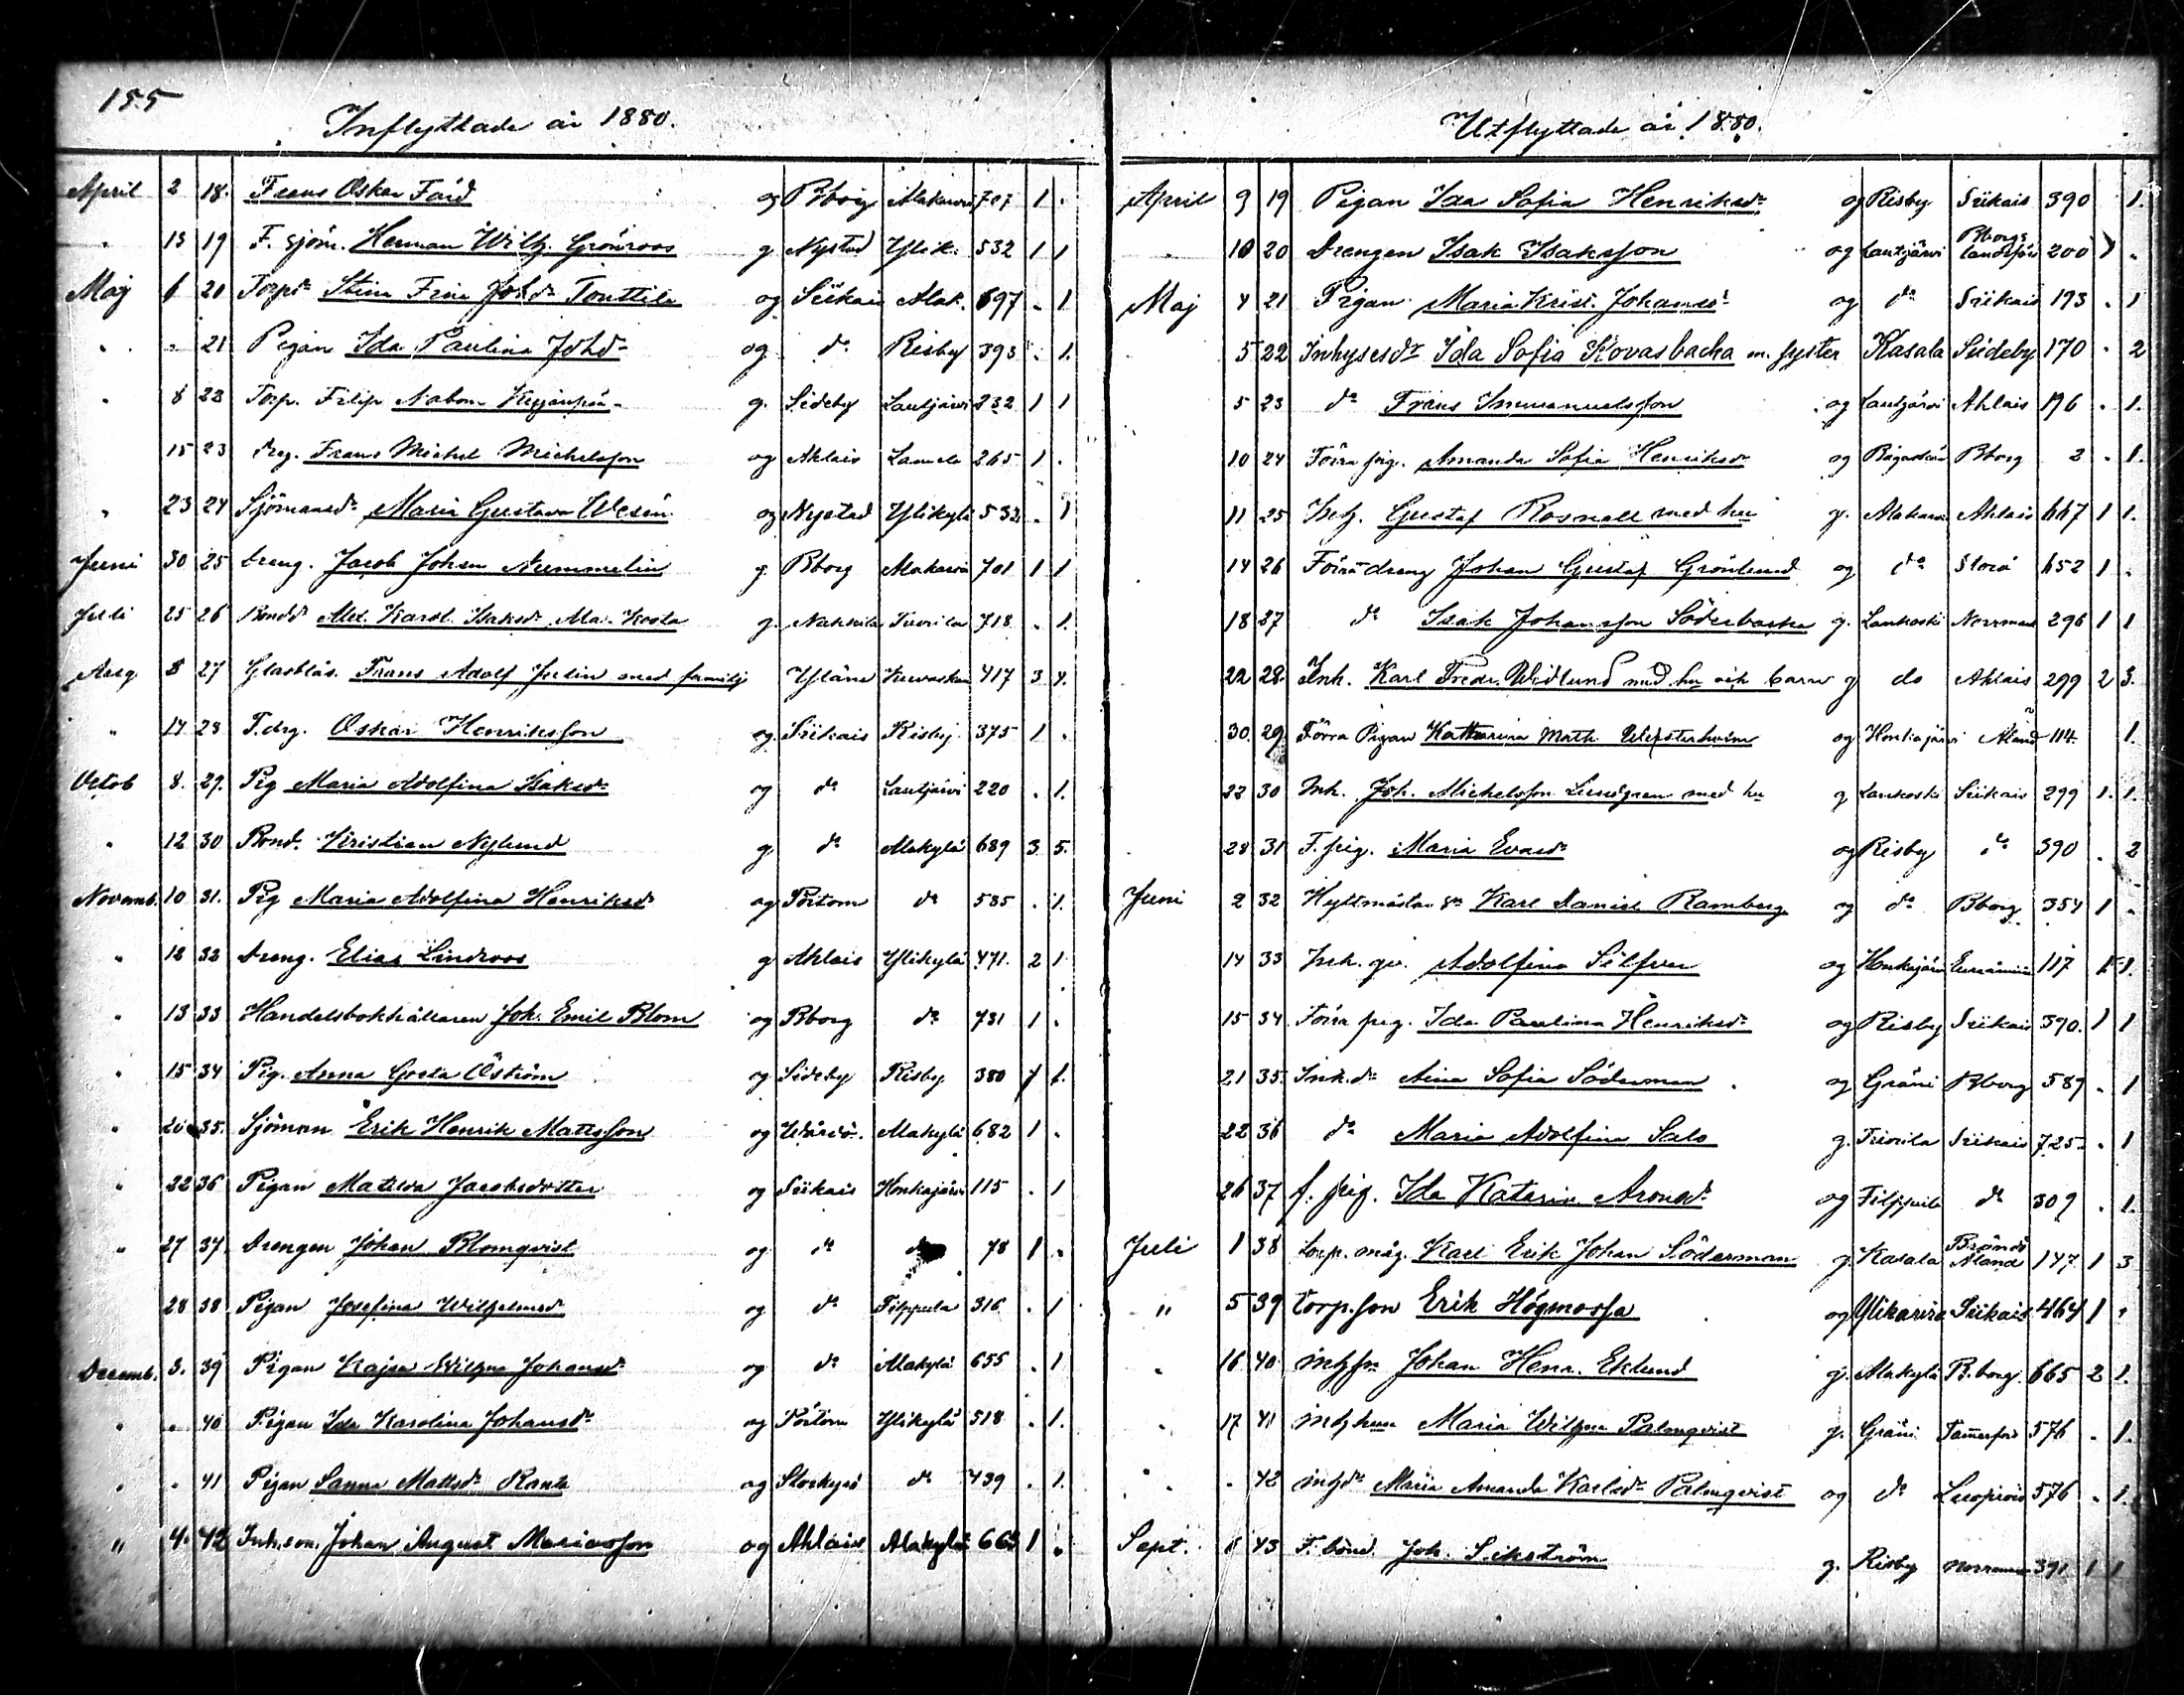 155
Inflyttade år 1880.
April 2 18. Frans Oskar Färd og Bborg Alakarvi 707 1 .
" 13 19 F. sjöm. Herman Wilh. Grönroos g Nystad Ylik. 532 1 1
Maj 6 20 Torpd. Stina Frin Johd. Tonttila og Siikais Alak. 697 . 1.
" " 21 Pigan Ida Paulina Johd. og do Risby 393 . 1.
" 8 22 Torp. Filip Nabom g. Sideby Lautjärvi 232 1 1
15 23 drg. Frans Michel Michelsson og Ahlais Lamela 265 1 .
" 23 24 Sjömansd. Maria Gustava Wesén og Nystad Ylikylä 532 . 1
Juni 30 25 dreng. Jacob Johan Nummelin g. Bborg Alakarvi 701 1 1
Juli 25 26 Bondd. Alex. Karol. Isaksd. Ma. Koola g. Nakkila Tuorila 718 . 1.
Aug. 8 27 Glasblås. Frans Adolf Julin med familj Yläne 417 3 4.
" 14 28 T.drg. Oskar Henriksson og. Siikais Risby 375 1 .
Octob 8. 29. Pig Maria Adolfina Isaksd. og do Lautjärvi 220 . 1.
" 12 30 Bond. Kristian Nylund g do Alakylä 689 3 5.
Novemb. 10 31. Pig Maria Adolfina Henriksd. og Pörtom do 585 . 1.
" 12 32 Dreng. Elias Lindroos g Ahlais Ylikylä 471. 2 1
" 13 33 Handelsbokhållaren Joh. Emil Blom og Bborg do 731 1 .
" 15 34 Pig. Anna Greta Öström og Sideby Risby 380 1 1.
" 20 35. Sjöman Erik Henrik Mattsson og Wårdö. Alakylä 682 1 .
" 22 36 Pigan Matilda Jacobsdotter og Siikais Honkajärvi 115 . 1
" 27 37. Drengen Johan Blomqvist og do do 78 1 .
28 38. Pigan Josefina Wilhelmsd. og do Filppula 316 . 1
Decemb. 3. 39 Pigan Kajsa Wilhma Johansd. og do Alakylä 655 . 1
" " 40 Pigan Ida Karolina Johansd. og Pörtom Ylikylä 518 . 1.
" " 41 Pigan Sanna Mattsd. Ranta og Storkyrö do 439 . 1.
" 4. 42 Inh.son. Johan August Mariasson og Ahlais Alakylä 663 1 .
Utflyttade år 1880.
April 9 19 Pigan Ida Sofia Henriksd. og Risby Siikais 390 1.
" 10 20 Drengen Isak Isaksson og Lautjärvi Bborgs Landsförs 200 1 .
Maj 4 21 Pigan Maria Krist. Johansd. og do Siikais 193 . 1
5 22 Inhysesdr Ida Sofia Kovasbacka m. syster Kasala Sideby 170 . 2
5 23 do Frans Immanuelsson og Lautjärvi Ahlais 196 . 1.
10 24 Förra pig. Amanda Sofia Henriksd. og Bborg 2 . 1.
11 25 Inh. Gustaf Rosnall med hu g. Alakarvi Ahlais 667 1 1.
14 26 Förra dreng Johan Gustaf Grönlund og do Storå 652 1 .
18 27 do Isak Johansson Söderbacka g. Lankoski Norrmark 296 1 1
22 28. Inh. Karl Fredr. Widlund med hu och barn g do Ahlais 299 2 3.
30. 29 Förra Pigan Katharina Math. Westerholm og Honkajärvi Åland 114. 1.
22 30 Inh. Joh. Michelsson Lundgren med hu g Lankoski Siikais 299 1. 1.
28 31 F.pig. Maria Evasd. og Risby do 390 . 2
Juni 2 32 Hyttmästar sn Karl Daniel Ramberg og do Bborg 354 1 .
14 33 Inh. qv. Adolfina Silfver og Honkajärvi 117 1 1.
15 34 Förra pig. Ida Paulina Henriksd. og Risby Siikais 390. 1 1
21 35. Inh.dr Aina Sofia Söderman og Gräni Bborg 587 . 1
22 36 do Maria Adolfina Salo g. Tuorila Siikais 725 . 1
26 37 f. pig. Ida Katarin. Aronsd. og Filppula do 309 . 1.
Juli 1 38 torp. måg. Karl Erik Johan Söderman g. Kasala Brändö Åland 147 1 3
" 5 39 torp.son Erik Högmossa og Ylikarvia Siikais 464 1 "
" 16 40. Johan Henr. Eklund g. Alakylä B.borg 665 2 1.
" 17 41 Maria Wilhma Palmqvist g. Gräni Tammerfors 576 . 1.
" " 42 Maria Amanda Karlsd. Palmqvist og do 576 . 1.
Sept. 6 43 F. bond. Joh. Sikström g. Risby Norrmark 391 1 1